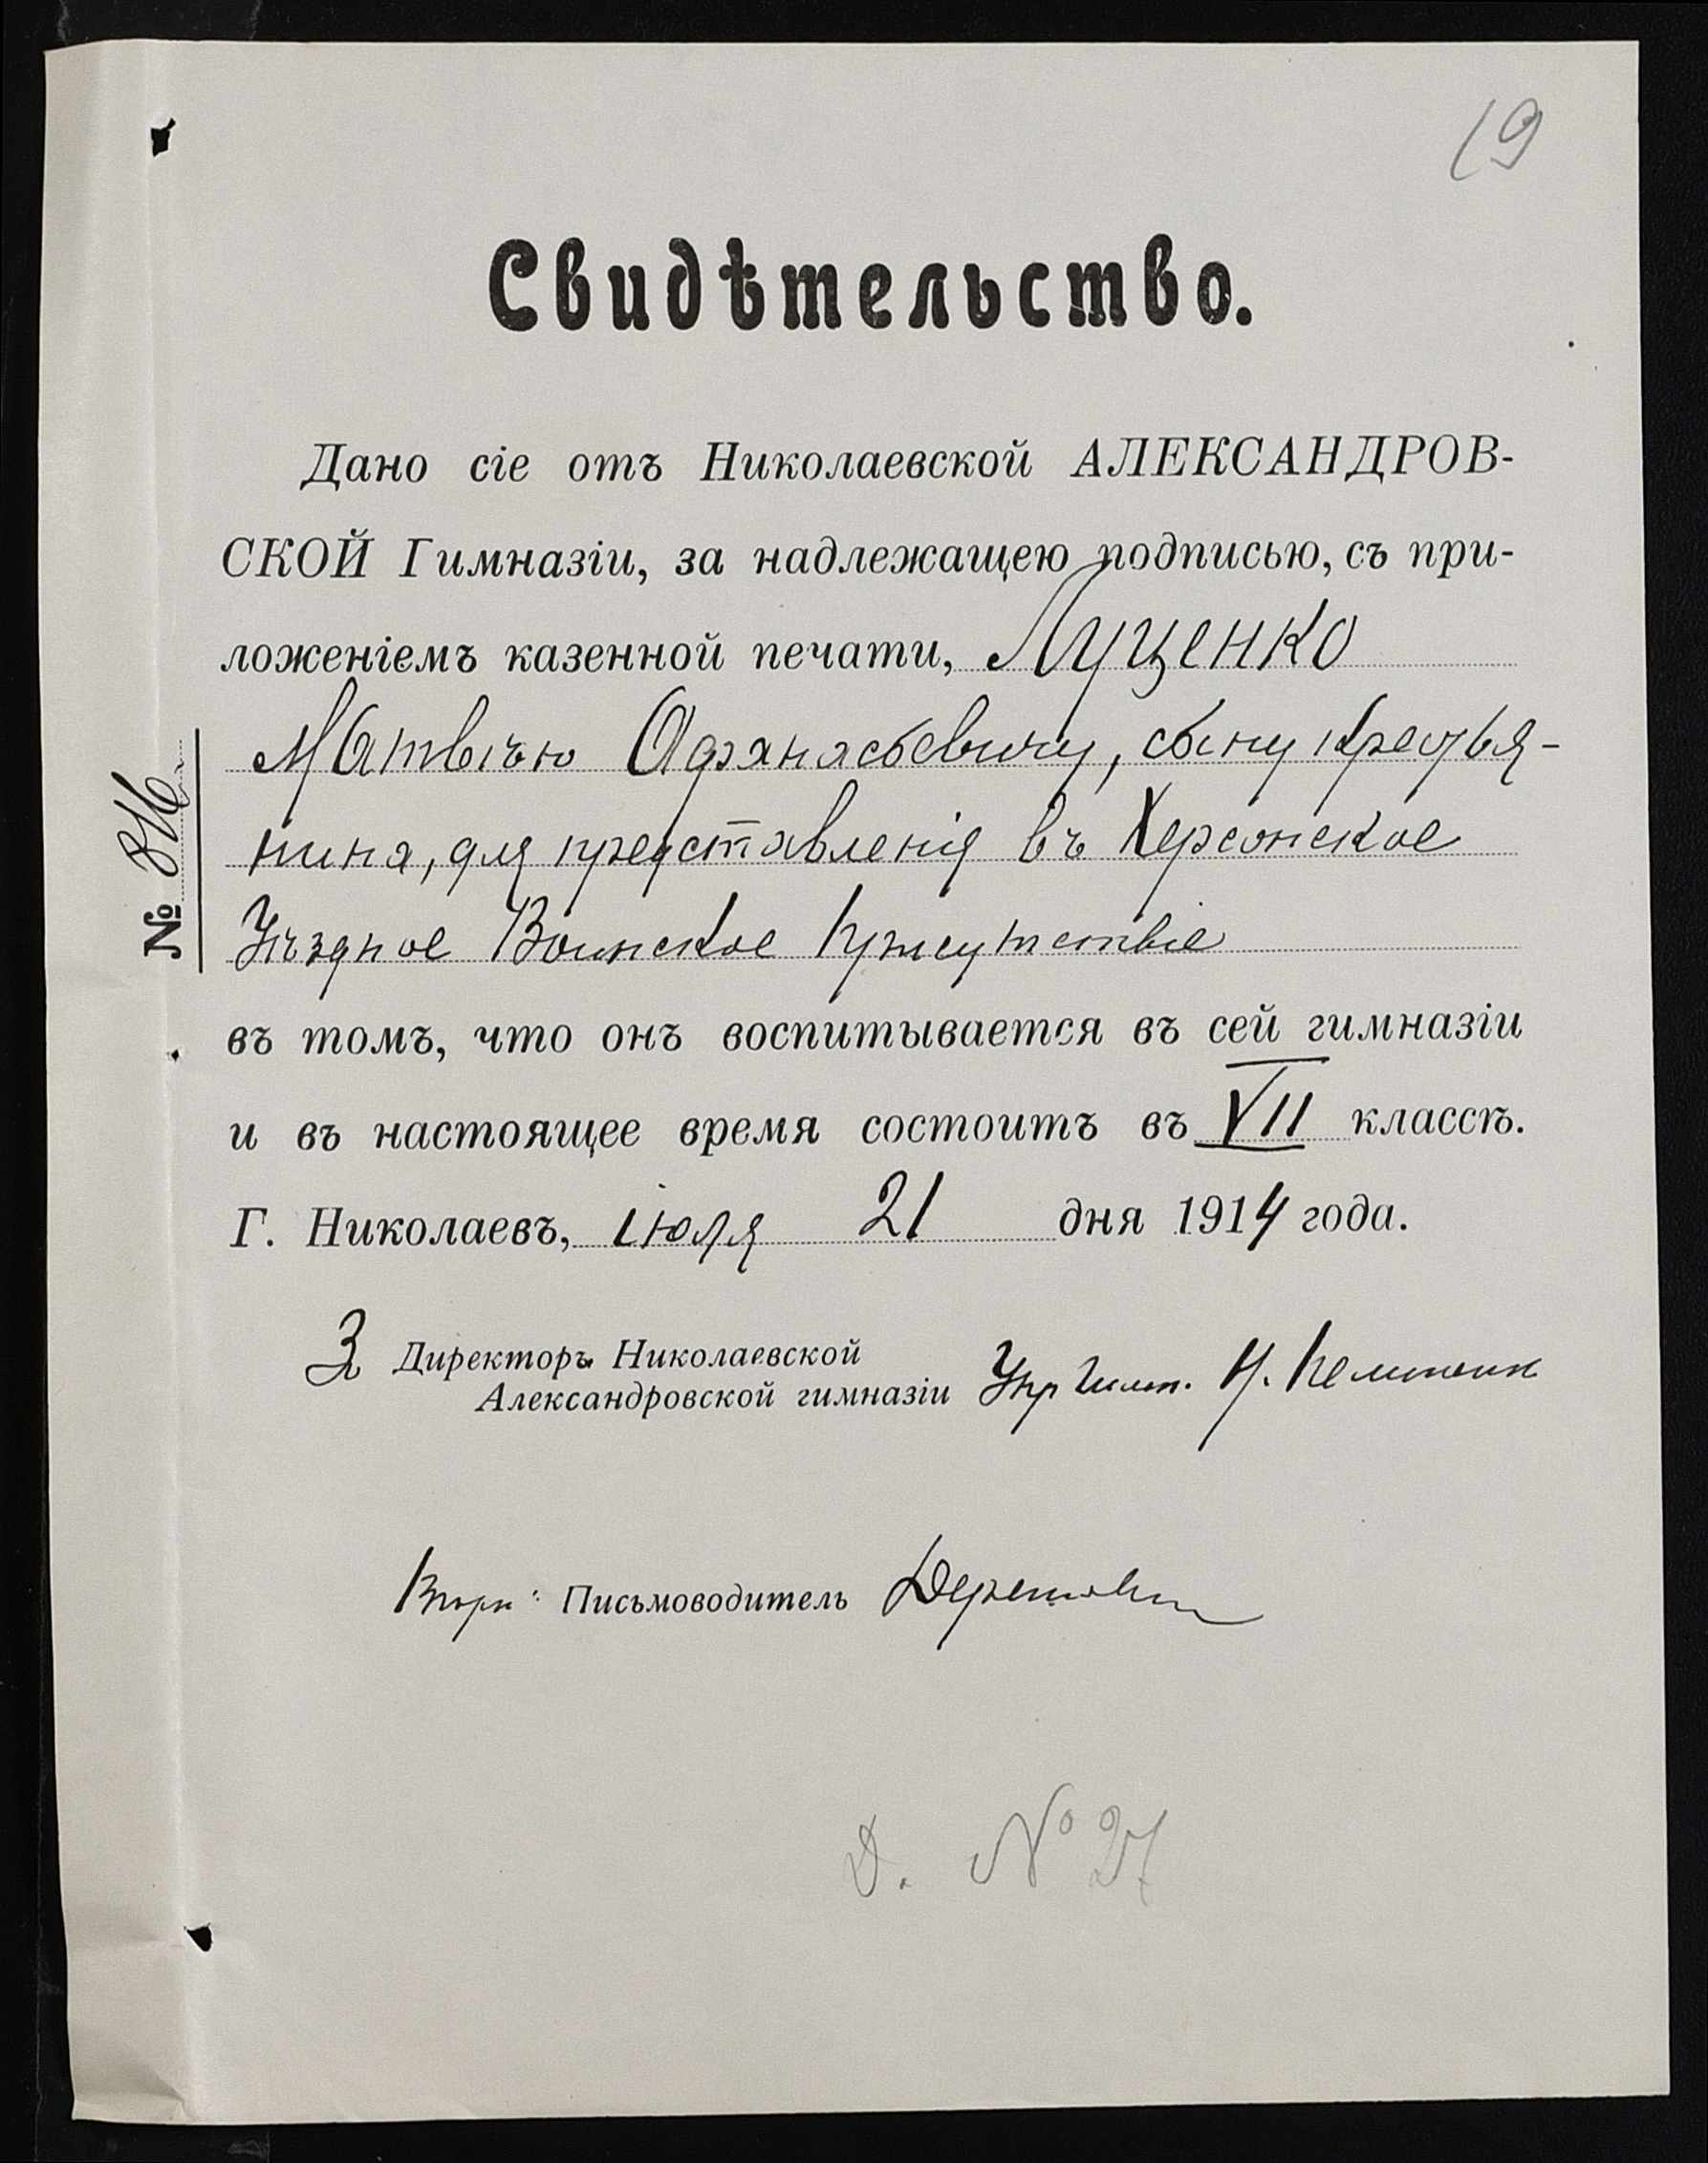 19
Свидѣтельство.
Дано сіе отъ Николаевской АЛЕКСАНДРОВ-
СКОЙ Гимназіи, за надлежащею подписью, съ при-
ложеніемъ казенной печати, Луценко
Матвѣю Афанасьевичу, сыну крестья-
нина, для представленія въ Херсонское
Уѣздное Воинское Присутствіе
№ 816
въ томъ, что онъ воспитывается въ сей гимназіи
и въ настоящее время состоитъ въ VII классѣ.
Г. Николаевъ, іюля 21 дня 1914 года.
З Директора Николаевской
Александровской гимназіи
Письмоводитель
Д. № 27